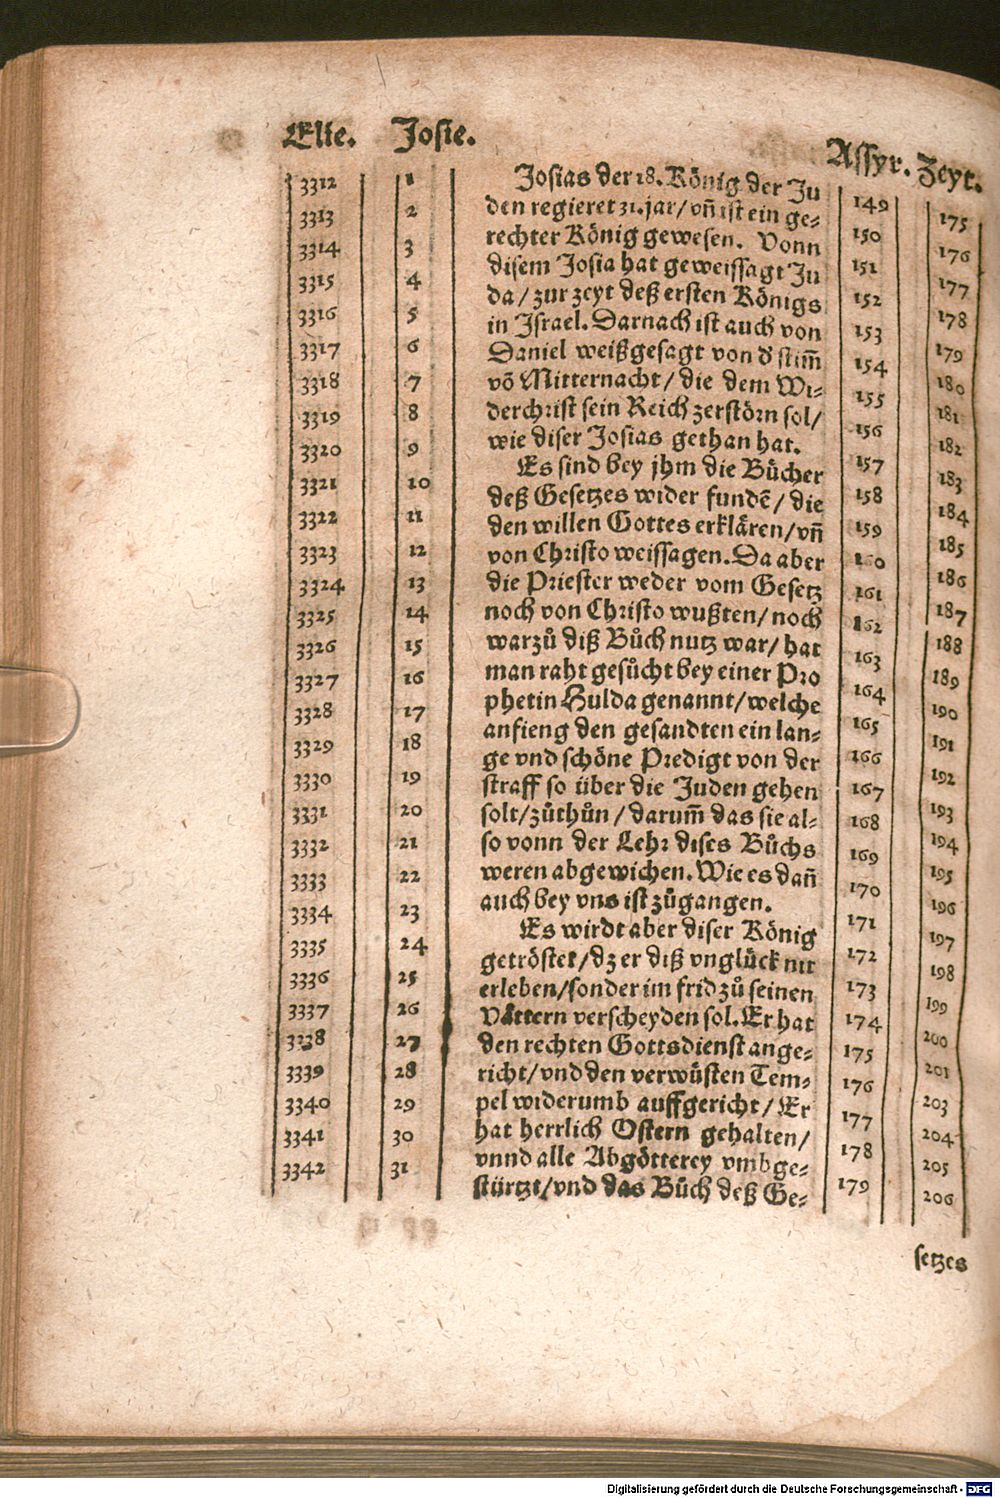 Elie.
3312
3313
3314
3315
3316
3317
3318
3319
3320
3321
3322
3323
3324
3325
3326
3327
3328
3329
3330
3331
3332
3333
3334
3335
3336
3337
3338
3339
3340
3341
3342
Josie.
1
2
3
4
5
6
7
8
9
10
11
12
13
14
15
16
17
18
19
20
21
22
23
24
25
26
27
28
29
30
31
Josias der 18. König der Ju
den regieret 31. jar/ vñ ist ein ge-
rechter König gewesen. Vonn
disem Josia hat geweissagt Ju
da/ zur zeyt deß ersten Königs
in Israel. Darnach ist auch von
Daniel weißgesagt von d' stim̃
võ Mitternacht/ die dem Wi-
derchrist sein Reich zerstörn sol/
wie diser Josias gethan hat.
Es sind bey jhm die Bücher
deß Gesetzes wider fundẽ/ die
den willen Gottes erklären/ vñ
von Christo weissagen. Da aber
die Priester weder vom Gesetz
noch von Christo wußten/ noch
warzů diß Bůch nutz war/ hat
man raht gesůcht bey einer Pro
phetin Hulda genannt/ welche
anfieng den gesandten ein lan-
ge vnd schöne Predigt von der
straff so über die Juden gehen
solt/ zůthůn/ darum̃ das sie al-
so vonn der Lehr dises Bůchs
weren abgewichen. Wie es dañ
auch bey vns ist zůgangen.
Es wirdt aber diser König
getröstet/ dz er diß vnglück nit
erleben/ sonder im frid zů seinen
Vättern verscheyden sol. Er hat
den rechten Gottsdienst ange-
richt/ vnd den verwüsten Tem-
pel widerumb auffgericht/ Er
hat herrlich Ostern gehalten/
vnnd alle Abgötterey vmbge-
stürtzt/ vnd das Bůch deß Ge-
Assyr.
149
150
151
152
153
154
155
156
157
158
159
160
161
162
163
164
165
166
167
168
169
170
171
172
173
174
175
176
177
178
179
Zeyt.
175
176
177
178
179
180
181
182
183
184
185
186
187
188
189
190
191
192
193
194
195
196
197
198
199
200
201
203
204
205
206
setzes
Digitalisierung gefördert durch die Deutsche Forschungsgemeinschaft - DFG